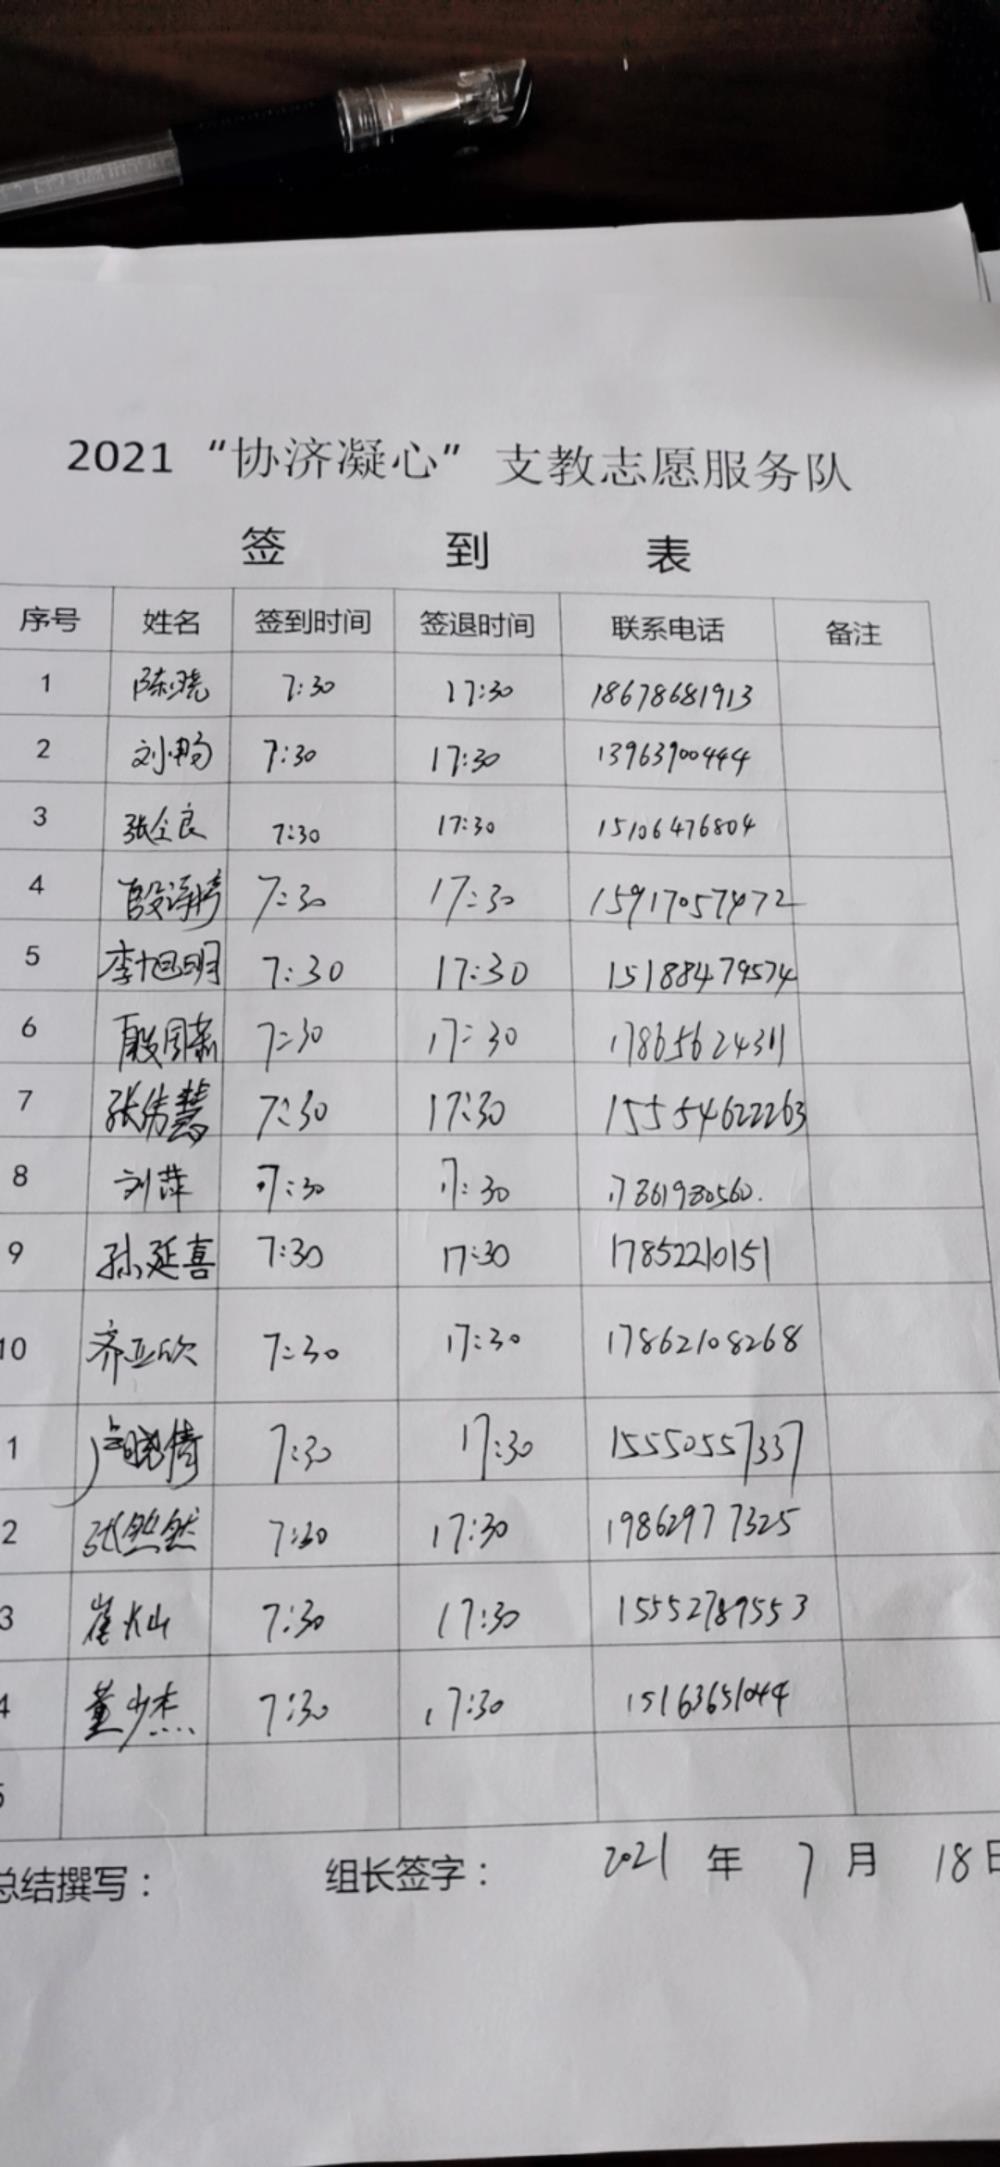 2021 “协济凝心” 支教志愿服务队
签 到 表
序号 姓名 签到时间 签退时间 联系电话 备注
1 陈晓 7:30 17:30 18678681913
2 刘畅 7:30 17:30 13963900444
3 张全良 7:30 17:30 15106476804
4 殷诗婷 7:30 17:30 15917057472
5 李旭明 7:30 17:30 15188479574
6 殷同燕 7:30 17:30 17865624311
7 张倩慧 7:30 17:30 15554622263
8 刘萍 7:30 17:30 17861980560.
9 孙延喜 7:30 17:30 17852210151
10 齐亚欣 7:30 17:30 17862108268
1 卢晓倩 7:30 17:30 15550557337
2 张然然 7:30 17:30 19862977325
3 崔火山 7:30 17:30 15552789553
4 董少杰 7:30 17:30 15163651044
5
总结撰写： 组长签字： 2021 年 7 月 18日